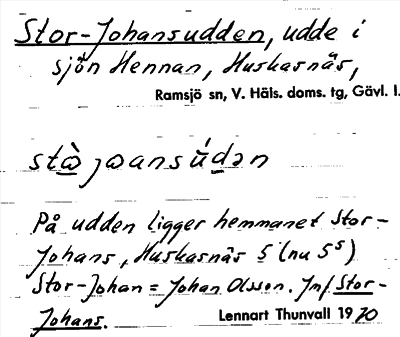 Stor-Johansudden, udde i
sjön Hennan, Huskasnäs,
Ramsjö sn, V. Häls. doms. tg, Gävl. l.
stò̱ joansú̱dən
På udden ligger hemmanet Stor-
Johans, Huskasnäs 5 (nu 5⁵)
Stor-Johan = Johan Olsson. Jmf Stor-
Johans.
Lennart Thunvall 1970